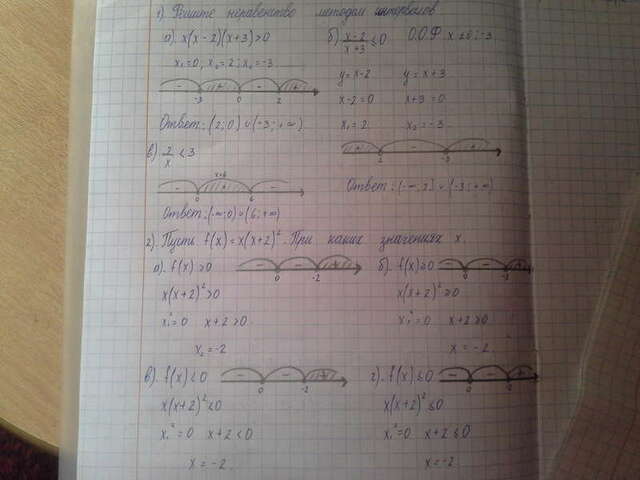 1) Решите неравенство методом интервалов
а). x(x-2)(x+3)>0
x₁=0, x₂=2; x₃=-3.
- + - +
-3 0 2
Ответ: (2; 0) ∪ (-3; +∞)
б) x-2/x+3 ≤ 0 О.О.Ф
y=x-2 y=x+3
x-2=0 x+3=0
x₁=2 x₂=-3
2 -3
Ответ: (-∞; 2] ∪ (-3; +∞)
в) 2/x < 3
- + -
0 6
Ответ: (-∞; 0) ∪ (6; +∞)
2). Пусть f(x)=x(x+2)². При каких значениях x.
а). f(x)>0
- - +
0 -2
x(x+2)²>0
x₁²=0 x+2>0
x₂=-2
б). f(x)≥0
- - +
0 -2
x(x+2)²≥0
x₁²=0 x+2≥0
x=-2.
в). f(x)<0
- - +
0 -2
x(x+2)²<0
x₁²=0 x+2<0
x=-2.
г). f(x)≤0
- - +
0 -2
x(x+2)²≤0
x₁²=0 x+2≤0
x=-2